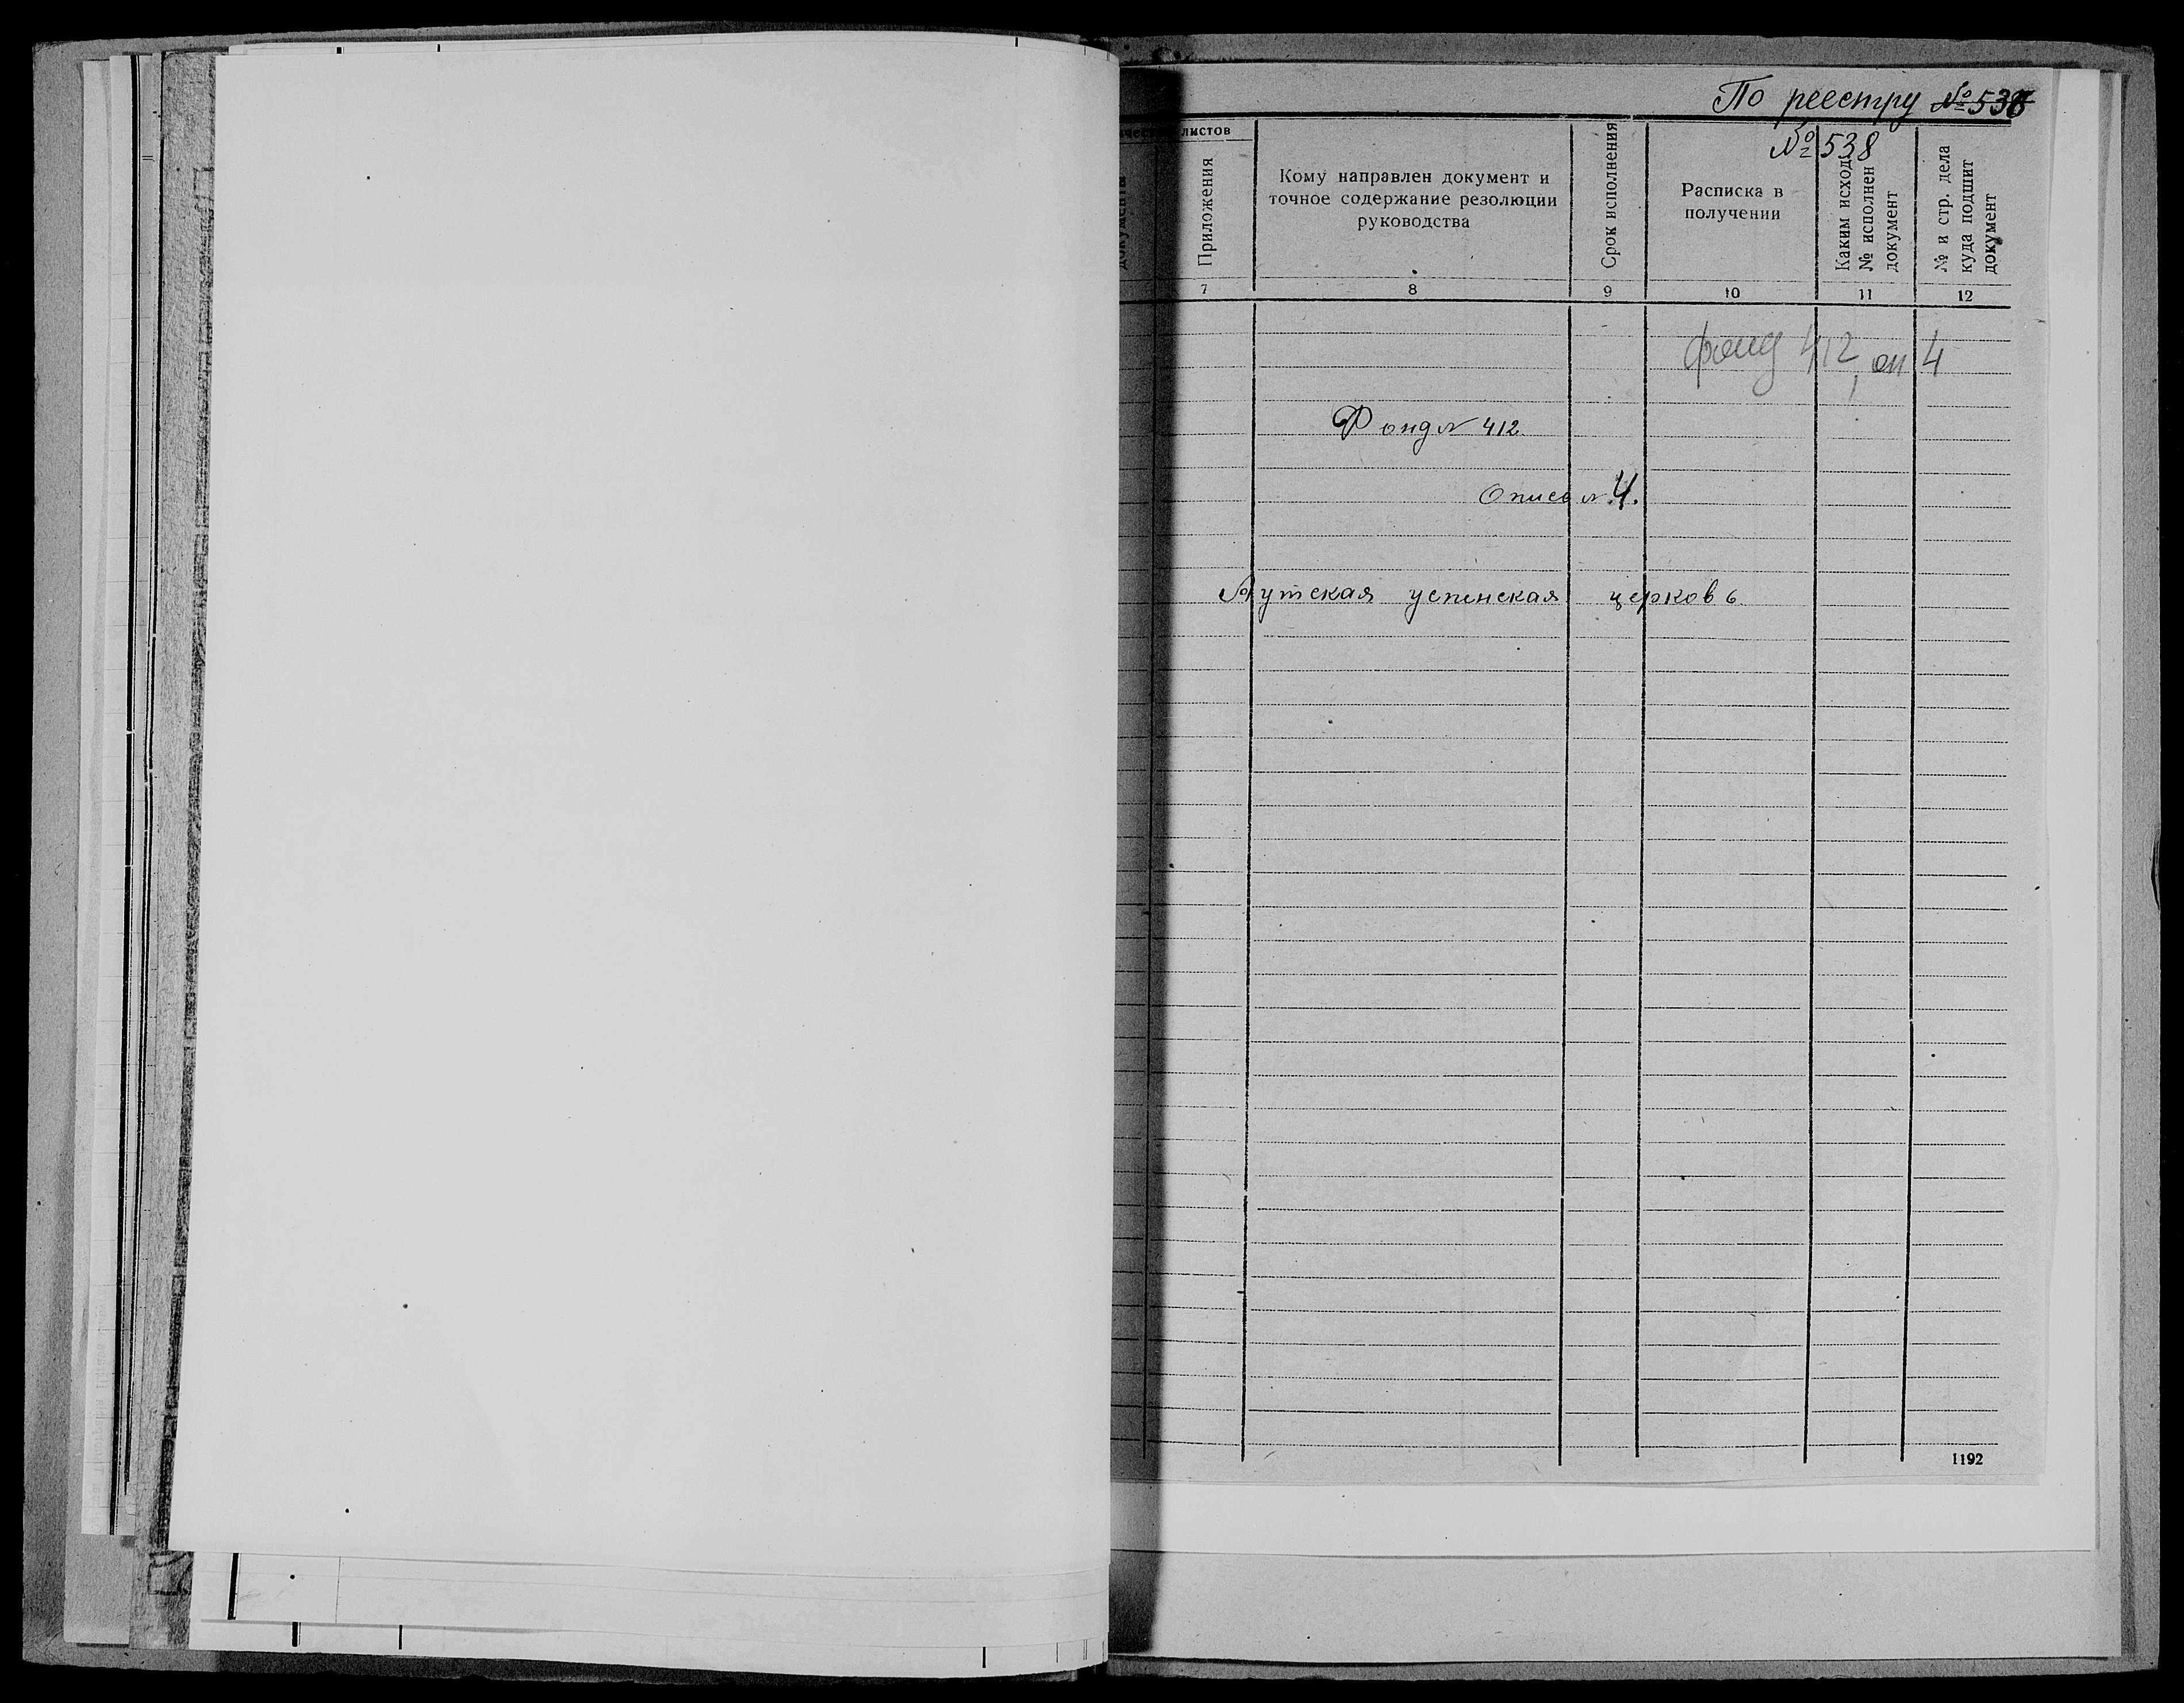 По реестру №538
№ 538
листов
документы
Приложения
Кому направлен документ и
точное содержание резолюции
руководства
Срок исполнения
Расписка в
получении
Каким исход.
№ исполнен
документ
№ и стр. дела
куда подшит
документ
7 8 9 10 11 12
фонд 412, оп 4
Фонд № 412.
Опись № 4.
Аутская успенская церковь.
1192